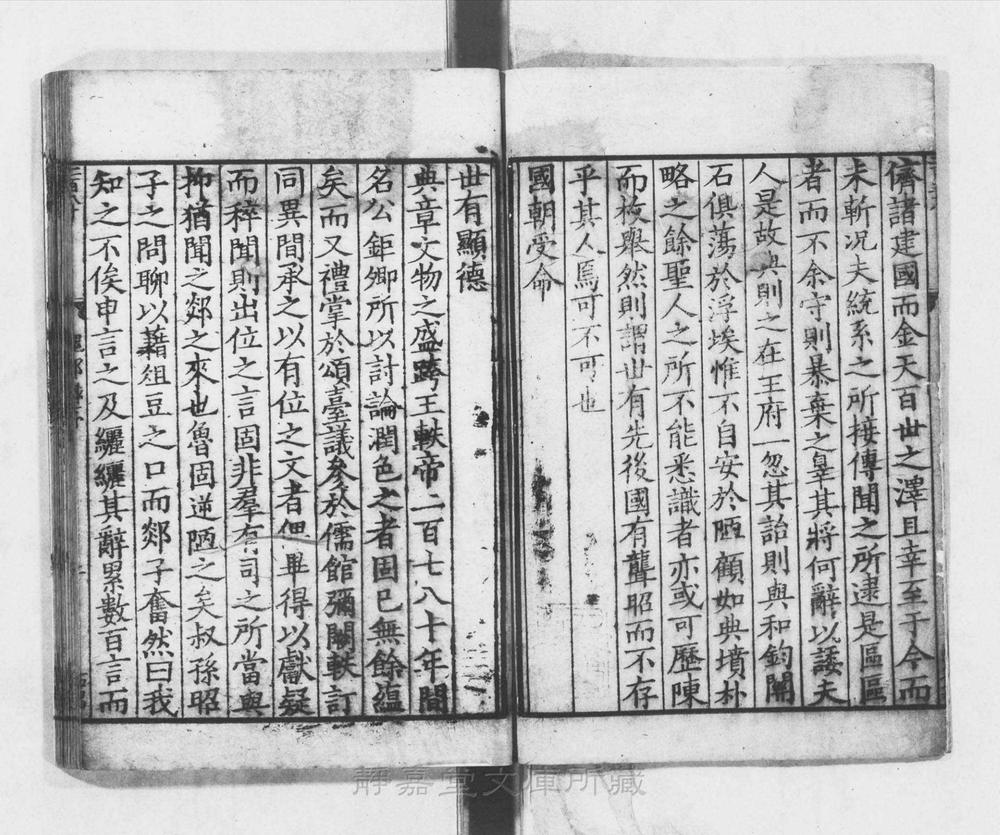 儕諸建國而金天百世之澤且幸至于今而
未斬况夫統系之所接傳聞之所逮是區區
者而不余守則暴棄之辠其將何辭以諉天
人是故典則之在王府一忽其詒則與和鈞關
石俱蕩於浮埃惟不自安於陋顧如典墳朴
略之餘聖人之所不能悉識者亦或可歷陳
而枚舉然則謂世有先後國有聾昭而不存
乎其人焉可不可也
國朝受命
世有顯德
典章文物之盛跨王軼帝二百七八十年間
名公鉅卿所以討論潤色之者固已無餘蘊
矣而又禮掌於頌臺議參於儒館彌闕軼訂
同異間承之以有位之文者俾畢得以獻疑
而稡聞則出位之言固非羣有司之所當與
抑猶聞之郯之來也魯固逆陋之矣叔孫昭
子之問聊以藉俎豆之口而郯子奮然曰我
知之不俟申言之及纚纚其辭累數百言而
靜嘉堂文庫所藏